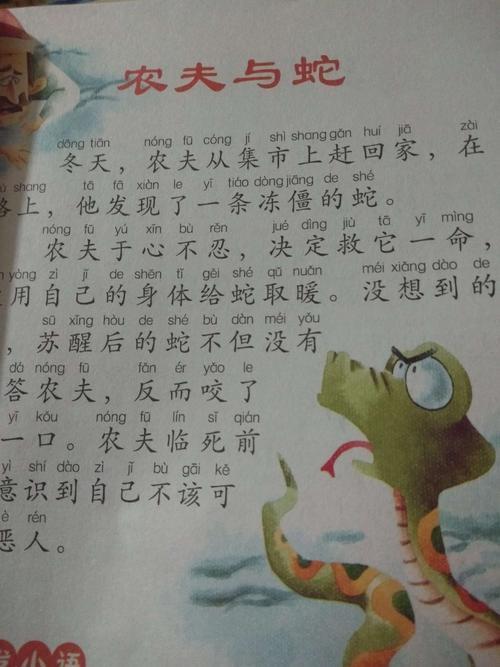 农夫与蛇
dōng tiān nóng fū cóng jí shì shang gǎn huí jiā zài
冬天，农夫从集市上赶回家，在
shang tā fā xiàn le yī tiáo dòng jiāng de shé
路上，他发现了一条冻僵的蛇。
nóng fū yú xīn bù rěn jué dìng jiù tā yī mìng
农夫于心不忍，决定救它一命，
yòng zì jǐ de shēn tǐ gěi shé qǔ nuǎn méi xiǎng dào de
用自己的身体给蛇取暖。没想到的
sū xǐng hòu de shé bù dàn méi yǒu
，苏醒后的蛇不但没有
dá nóng fū fǎn ér yǎo le
答农夫，反而咬了
yī kǒu nóng fū lín sǐ qián
一口。农夫临死前
yì shí dào zì jǐ bù gāi kě
意识到自己不该可
è rén
恶人。
小语